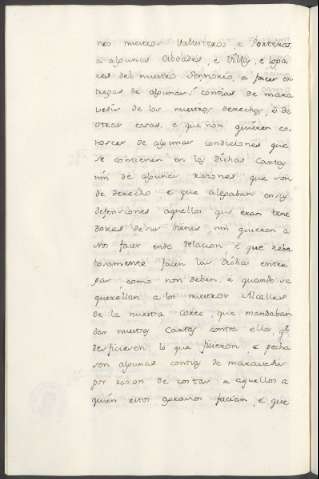 nro nuestros Vallesteros, e Porteros
a algunas Cibdades, e Villas, e loga-
res del nuestro Sennorio, a facer en-
tregas de algunas contias de mara-
vedis de los nuestros derechos, o de
otras cosas, e que non quieren co-
noscer de algunas condiciones que
se contienen en las dichas Cartas
nin de algunas rasones que son
de derecho e que alegaban en sus
defensiones aquellos que eran tene-
dores de sus bienes, nin querian a
Nos facer ende relacion, e que rebe-
tosamente facen las dichas entre-
gas como non deben, e quando se
querellan a los nuestros Alcalles
de la nuestra Corte, que mandaban
dar nuestras Cartas contra ellos q̃
desficieren lo que ficieron, e pecha-
ron algunas contias de maravedis
por rason de costas a aquellos a
quien estos agravios facian, e que